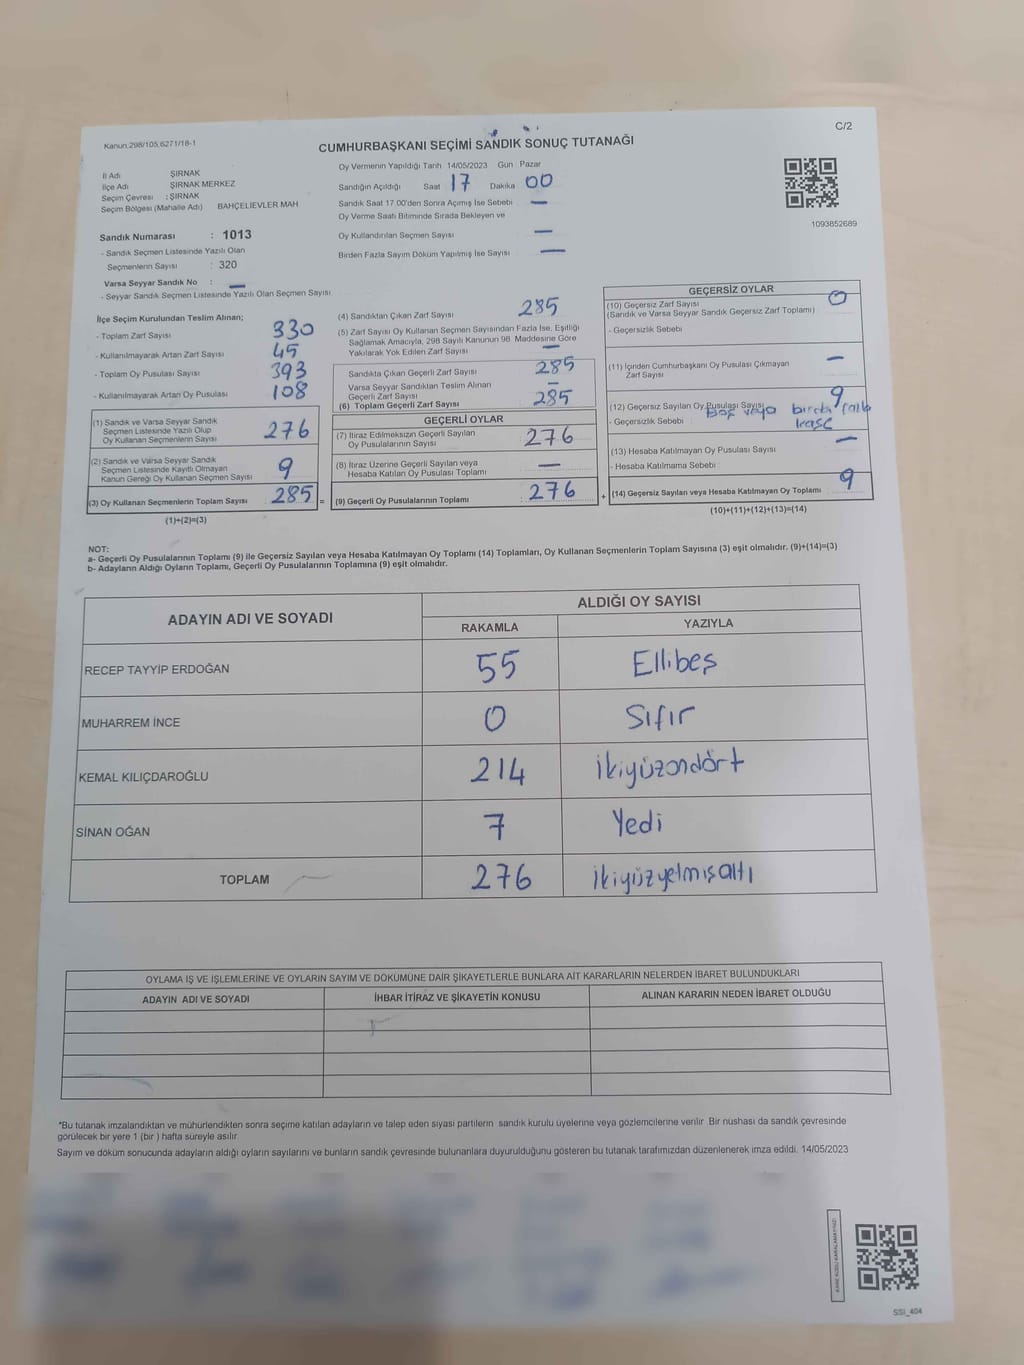 C/2
Kanun,298/105,6271/18-1
CUMHURBAŞKANI SEÇİMİ SANDIK SONUÇ TUTANAĞI
İl Adı ŞIRNAK
İlçe Adı ŞIRNAK MERKEZ
Seçim Çevresi : ŞIRNAK
Seçim Bölgesi (Mahalle Adı) BAHÇELİEVLER MAH
Sandık Numarası : 1013
- Sandık Seçmen Listesinde Yazılı Olan
Seçmenlerin Sayısı : 320
Varsa Seyyar Sandık No : —
- Seyyar Sandık Seçmen Listesinde Yazılı Olan Seçmen Sayısı
Oy Vermenin Yapıldığı Tarih 14/05/2023 Gün Pazar
Sandığın Açıldığı Saat 17 Dakika 00
Sandık Saat 17.00'den Sonra Açımış İse Sebebi —
Oy Verme Saati Bitiminde Sırada Bekleyen ve
Oy Kullandırılan Seçmen Sayısı —
Birden Fazla Sayım Döküm Yapılmış İse Sayısı —
1093852689
İlçe Seçim Kurulundan Teslim Alınan;
- Toplam Zarf Sayısı 330
- Kullanılmayarak Artan Zarf Sayısı 45
- Toplam Oy Pusulası Sayısı 393
- Kullanılmayarak Artan Oy Pusulası 108
(1) Sandık ve Varsa Seyyar Sandık
Seçmen Listesinde Yazılı Olup
Oy Kullanan Seçmenlerin Sayısı 276
(2) Sandık ve Varsa Seyyar Sandık
Seçmen Listesinde Kayıtlı Olmayan
Kanun Gereği Oy Kullanan Seçmen Sayısı 9
(3) Oy Kullanan Seçmenlerin Toplam Sayısı 285 =
(1)+(2)=(3)
(4) Sandıktan Çıkan Zarf Sayısı 285
(5) Zarf Sayısı Oy Kullanan Seçmen Sayısından Fazla İse, Eşitliği
Sağlamak Amacıyla, 298 Sayılı Kanunun 98. Maddesine Göre
Yakılarak Yok Edilen Zarf Sayısı —
Sandıkta Çıkan Geçerli Zarf Sayısı 285
Varsa Seyyar Sandıktan Teslim Alınan
Geçerli Zarf Sayısı —
(6) Toplam Geçerli Zarf Sayısı 285
GEÇERLİ OYLAR
(7) İtiraz Edilmeksizin Geçerli Sayılan
Oy Pusulalarının Sayısı 276
(8) İtiraz Üzerine Geçerli Sayılan veya
Hesaba Katılan Oy Pusulası Toplamı —
(9) Geçerli Oy Pusulalarının Toplamı 276 +
GEÇERSİZ OYLAR
(10) Geçersiz Zarf Sayısı 0
(Sandık ve Varsa Seyyar Sandık Geçersiz Zarf Toplamı)
- Geçersizlik Sebebi
(11) İçinden Cumhurbaşkanı Oy Pusulası Çıkmayan
Zarf Sayısı —
(12) Geçersiz Sayılan Oy Pusulası Sayısı 9
- Geçersizlik Sebebi : Boş veya birden fazla
kaşe
(13) Hesaba Katılmayan Oy Pusulası Sayısı —
- Hesaba Katılmama Sebebi
(14) Geçersiz Sayılan veya Hesaba Katılmayan Oy Toplamı 9
(10)+(11)+(12)+(13)=(14)
NOT:
a- Geçerli Oy Pusulalarının Toplamı (9) ile Geçersiz Sayılan veya Hesaba Katılmayan Oy Toplamı (14) Toplamları, Oy Kullanan Seçmenlerin Toplam Sayısına (3) eşit olmalıdır. (9)+(14)=(3)
b- Adayların Aldığı Oyların Toplamı, Geçerli Oy Pusulalarının Toplamına (9) eşit olmalıdır.
ADAYIN ADI VE SOYADI ALDIĞI OY SAYISI
RAKAMLA YAZIYLA
RECEP TAYYİP ERDOĞAN 55 Ellibeş
MUHARREM İNCE 0 Sıfır
KEMAL KILIÇDAROĞLU 214 İkiyüzondört
SİNAN OĞAN 7 Yedi
TOPLAM 276 İkiyüzyelmişaltı
OYLAMA İŞ VE İŞLEMLERİNE VE OYLARIN SAYIM VE DÖKÜMÜNE DAİR ŞİKAYETLERLE BUNLARA AİT KARARLARIN NELERDEN İBARET BULUNDUKLARI
ADAYIN ADI VE SOYADI İHBAR İTİRAZ VE ŞİKAYETİN KONUSU ALINAN KARARIN NEDEN İBARET OLDUĞU
*Bu tutanak imzalandıktan ve mühürlendikten sonra seçime katılan adayların ve talep eden siyasi partilerin sandık kurulu üyelerine veya gözlemcilerine verilir. Bir nüshası da sandık çevresinde
görülecek bir yere 1 (bir ) hafta süreyle asılır.
Sayım ve döküm sonucunda adayların aldığı oyların sayılarını ve bunların sandık çevresinde bulunanlara duyurulduğunu gösteren bu tutanak tarafımızdan düzenlenerek imza edildi. 14/05/2023
SSI_404